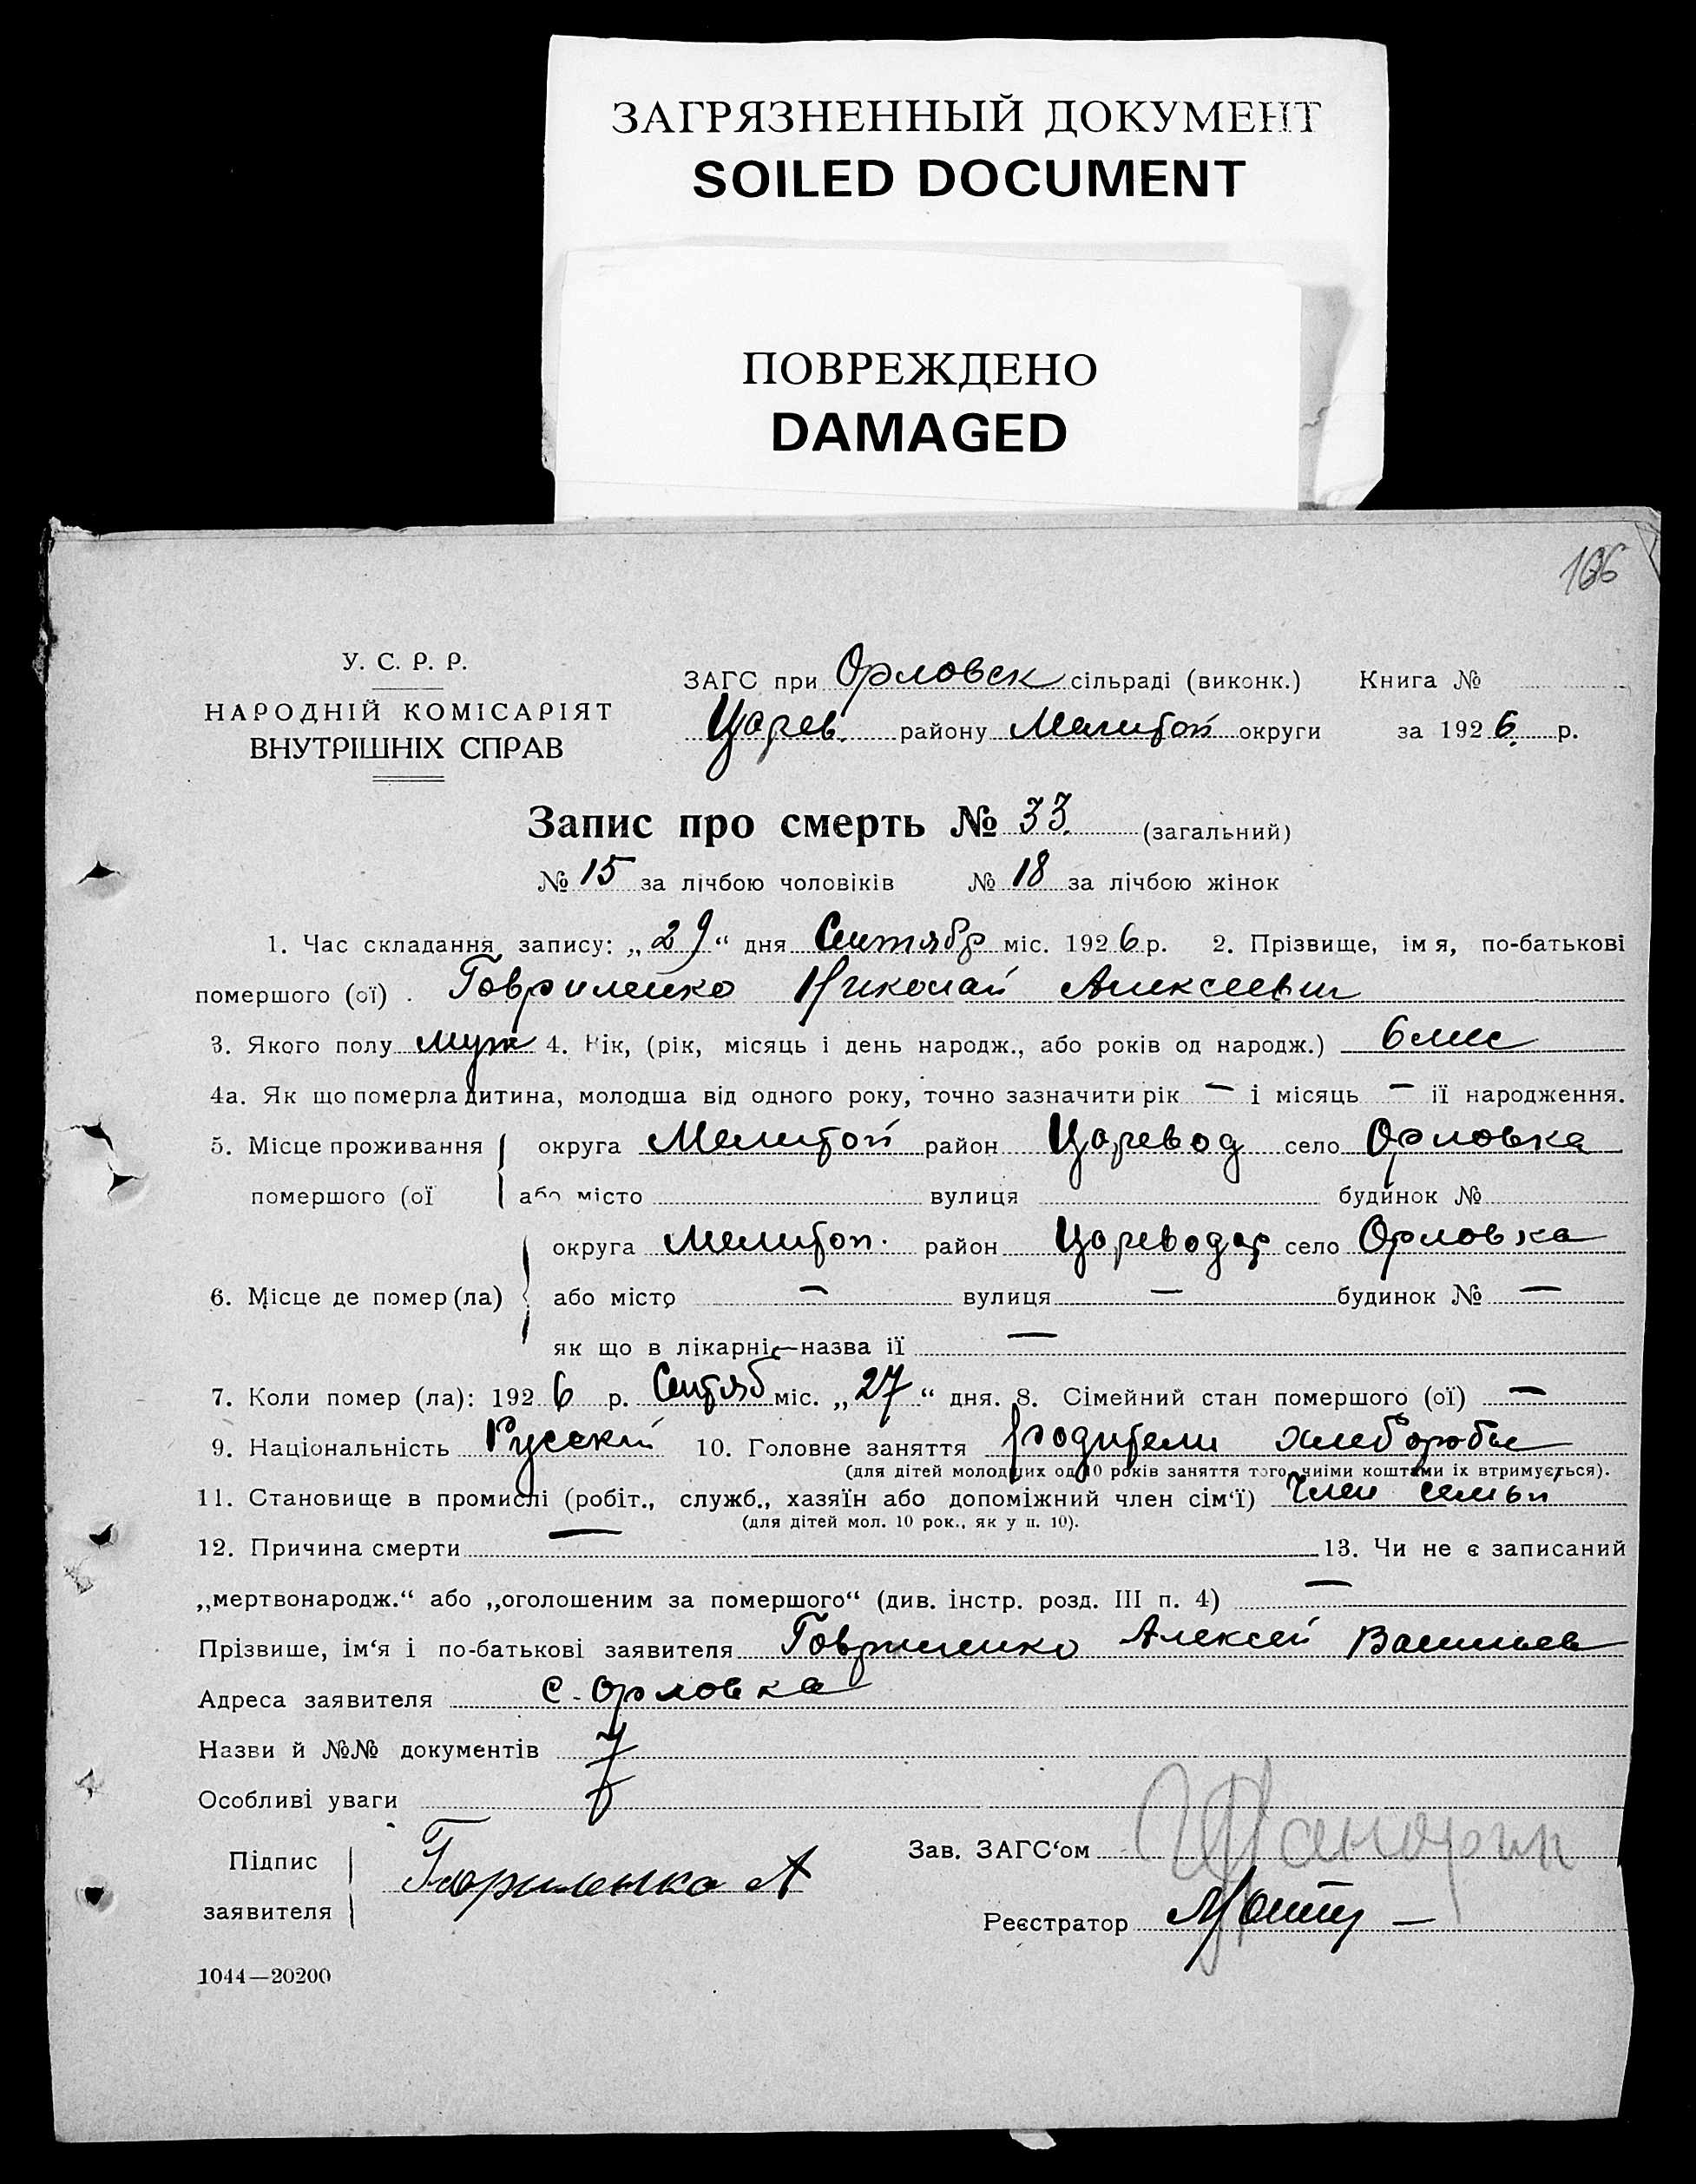 ЗАГРЯЗНЕННЫЙ ДОКУМЕНТ
SOILED DOCUMENT
ПОВРЕЖДЕНО
DAMAGED
166
У. С. Р. Р.
НАРОДНІЙ КОМІСАРІЯТ
ВНУТРІШНІХ СПРАВ
ЗАГС при Орловск сільраді (виконк.) Книга №
Царев. району Мелитоп округи за 1926 р.
Запис про смерть № 33 (загальний)
№ 15 за лічбою чоловіків № 18 за лічбою жінок
1. Час складання запису: „29“ дня Сентябр міс. 1926 р. 2. Прізвище, імя, по-батькові
помершого (ої) . Говриленко Николай Алексеевич
3. Якого полу муж 4. Вік, (рік, місяць і день народж., або років од народж.) 6 мес
4а. Як що померла дитина, молодша від одного року, точно зазначити рік — і місяць — її народження.
5. Місце проживання округа Мелитоп район Царевод село Орловка
помершого (ої або місто вулиця будинок №
округа Мелитоп. район Цареводар село Орловка
6. Місце де помер (ла) або місто — вулиця — будинок № —
як що в лікарні—назва ії —
7. Коли помер (ла): 1926 р. Сентяб міс. „27“ дня. 8. Сімейний стан помершого (ої) —
9. Національність Русский 10. Головне заняття родители хлеборобы
(для дітей молодших од 10 років заняття того, чиїми коштами їх втримується).
11. Становище в промислі (робіт., служб., хазяїн або допоміжний член сім‘ї) Член семьи
(для дітей мол. 10 рок., як у п. 10).
12. Причина смерти — 13. Чи не є записаний
„мертвонародж.“ або „оголошеним за помершого“ (див. інстр. розд. III п. 4) —
Прізвише, ім‘я і по-батькові заявителя Говриленко Алексей Васильев
Адреса заявителя с. Орловка
Назви й №№ документів
Особливі уваги
Підпис
заявителя
Гавриленко А
Зав. ЗАГС‘ом
Реєстратор
1044—20200